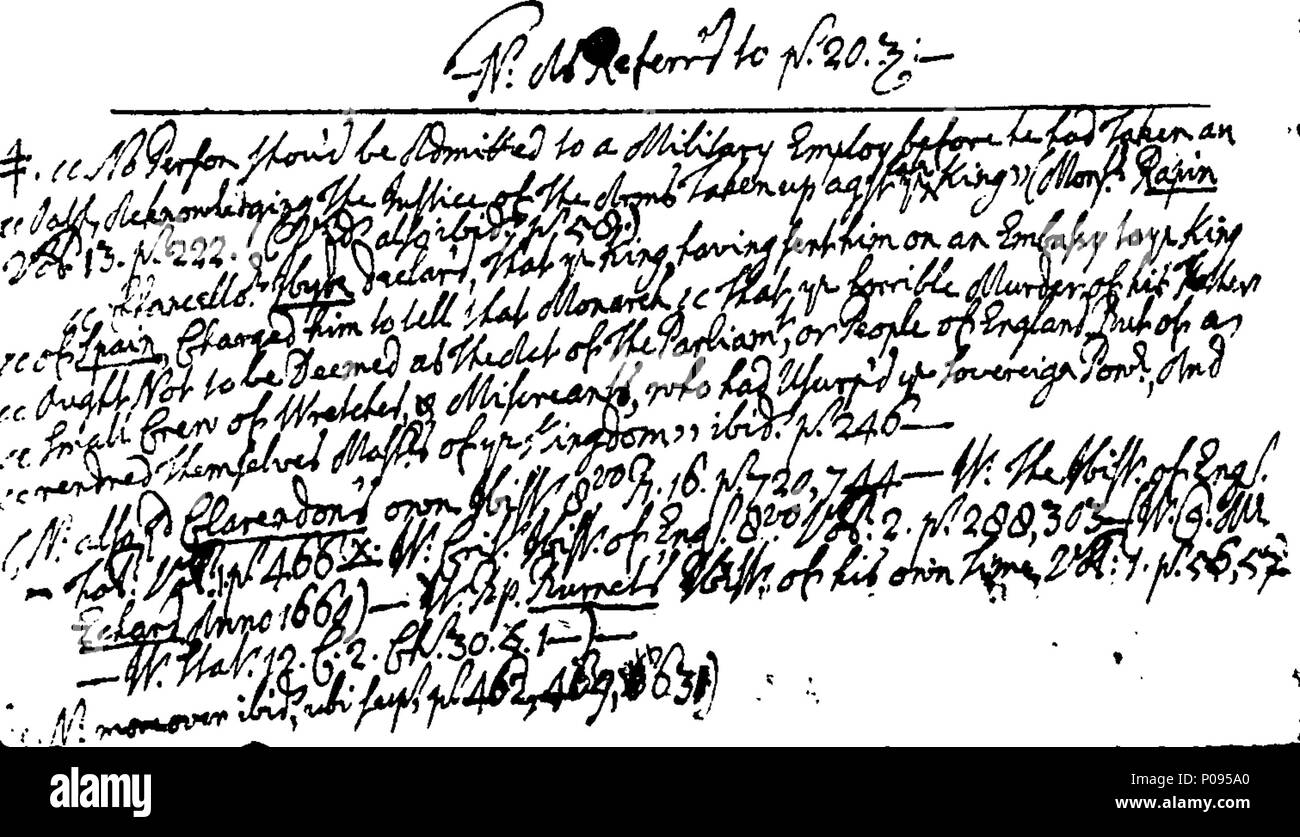 —N.º As Referr'd to p.º 20.3:—
‡. "No Person shou'd be Admitted to a Military Employ before he had Taken an
"Oath, Acknowledging The Justice of The Arms Taken up ag.st y.e King" (Mons.r Rapin
Vol. 13. p. 222. (Vid. also ibid. p. 58.)
"Chancello.r Hyde Declar'd, That y.e King, having sent him on an Embassy to y.e King
"of Spain, Charged him to tell that Monarch, "That y.e horrible Murder of his Father
"Ought Not to be Deemed as The Act of The Parliam.t, or People of England, But of a
"Small Crew of Wretches, & Miscreants, who had Usurp'd y.e Sovereign Pow.r, And
"rendred Themselves Mast.rs of y.e Kingdom" ibid. p. 246—
(N. also L.d Clarendon's own Hist. 8.vo B. 16. p. 720, 744— N. The Hist. of Engl.
p. 466 N. Crit. Hist. of Engl. 8.vo Vol. 2. p. 288, 303—
Echard Anno 1660)— N. Bp. Burnet's Hist. of his own time, Vol: 1. p. 56, 57
— N. Stat. 12. C. 2. Ch. 30. §. 1—)—
N. moreover ibid, ubi sup, p. 462, 469,
alamy
alamy
Image ID: P095A0
www.alamy.com